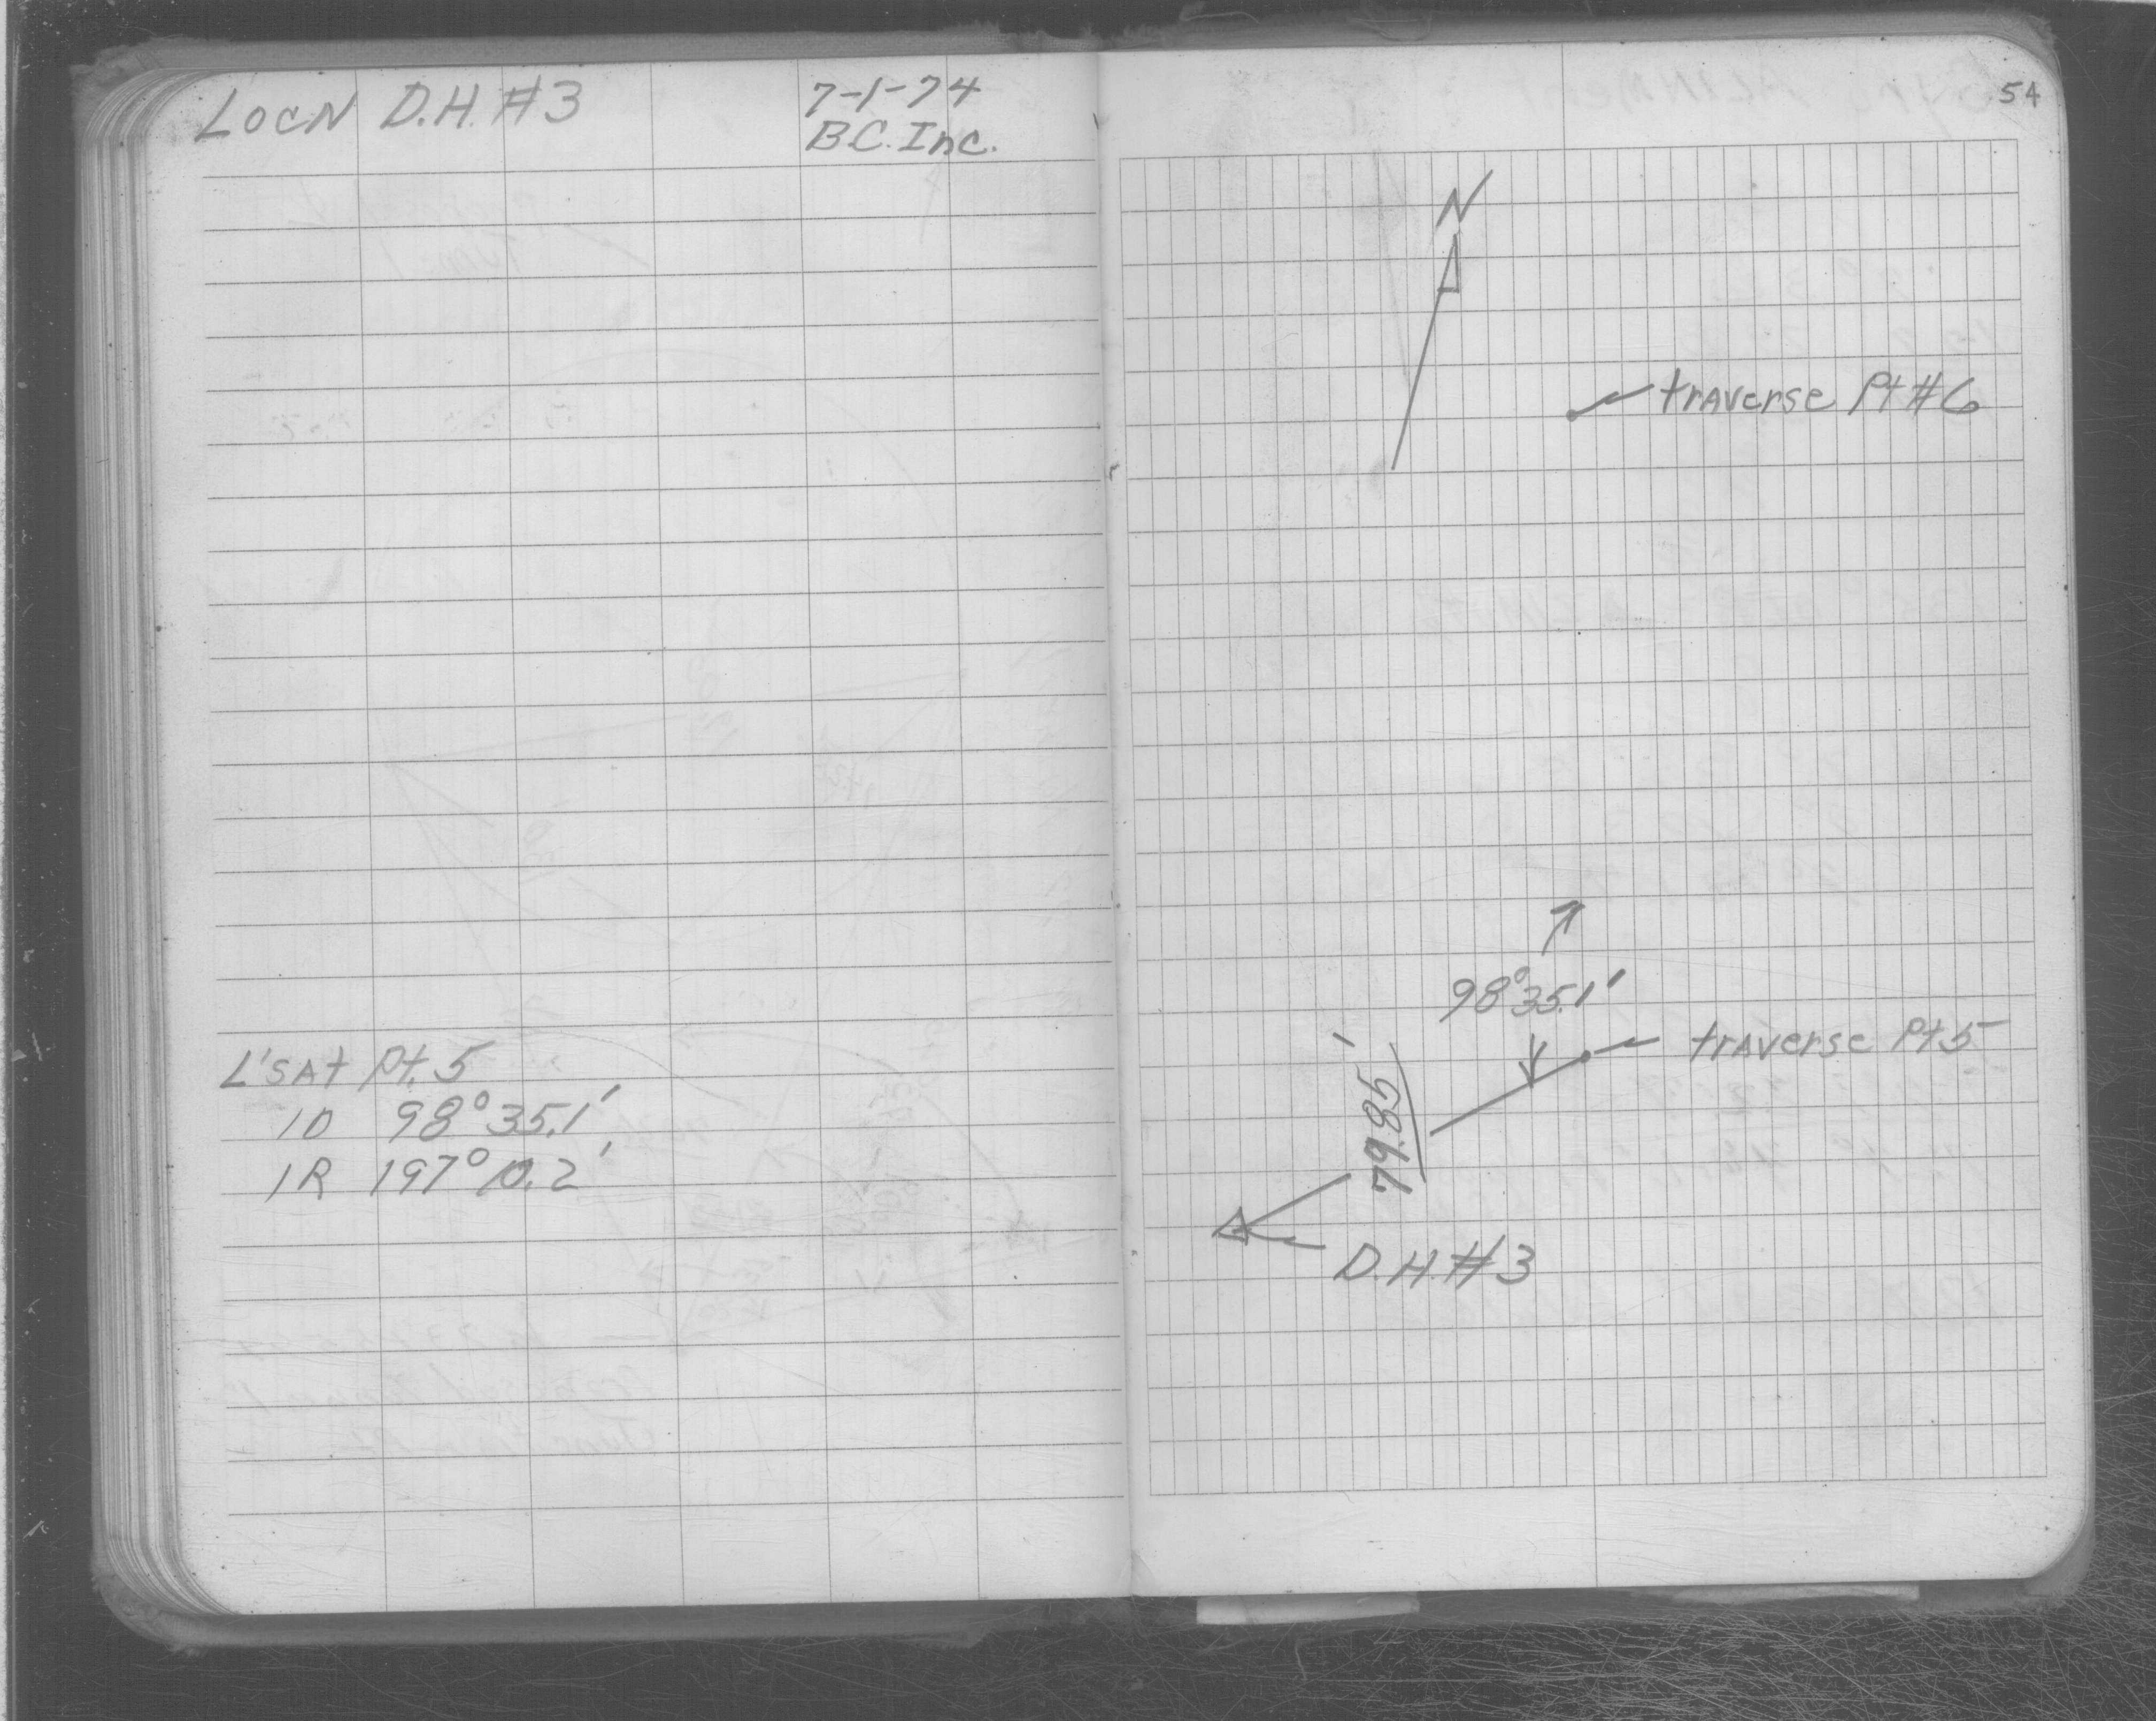 LOCN D.H. #3
7-1-74
B.C. Inc.
L'S At Pt. 5
1D 98° 35.1'
1R 197° 10.2'
54
N
traverse Pt #6
98° 35.1'
traverse Pt 5
79.85'
D.H. #3